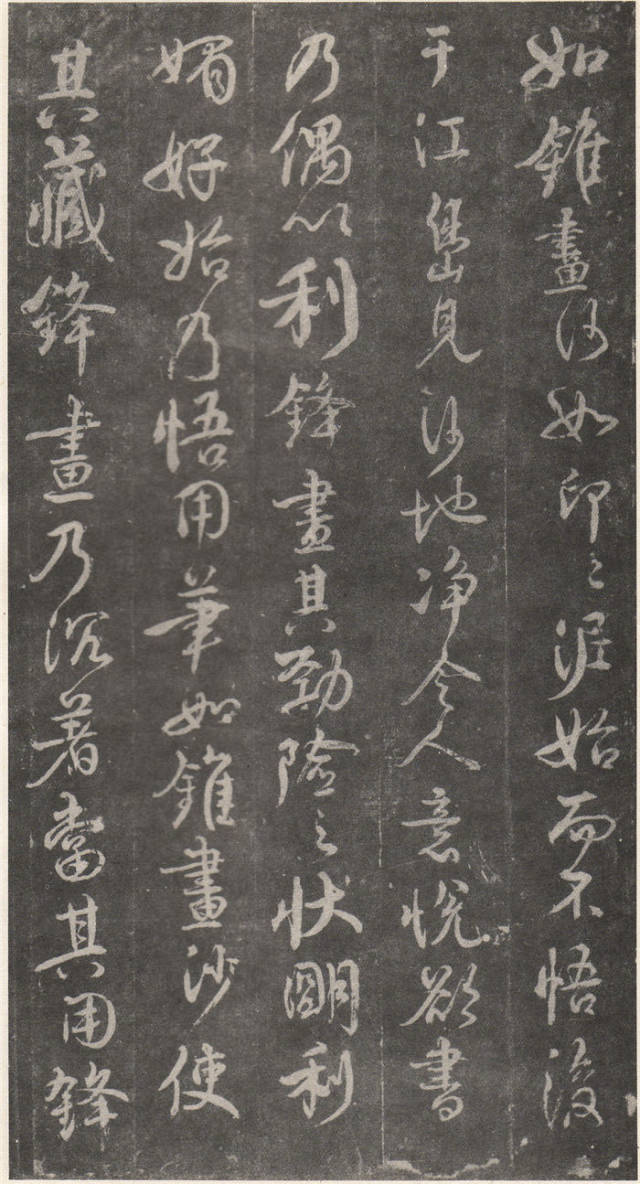 如錐畫沙如印印泥始而不悟後
于江島見沙地净令人意悦欲書
乃偶以利鋒畫其勁險之狀朙利
媚好始乃悟用筆如錐畫沙使
其藏鋒畫乃沉著當其用鋒